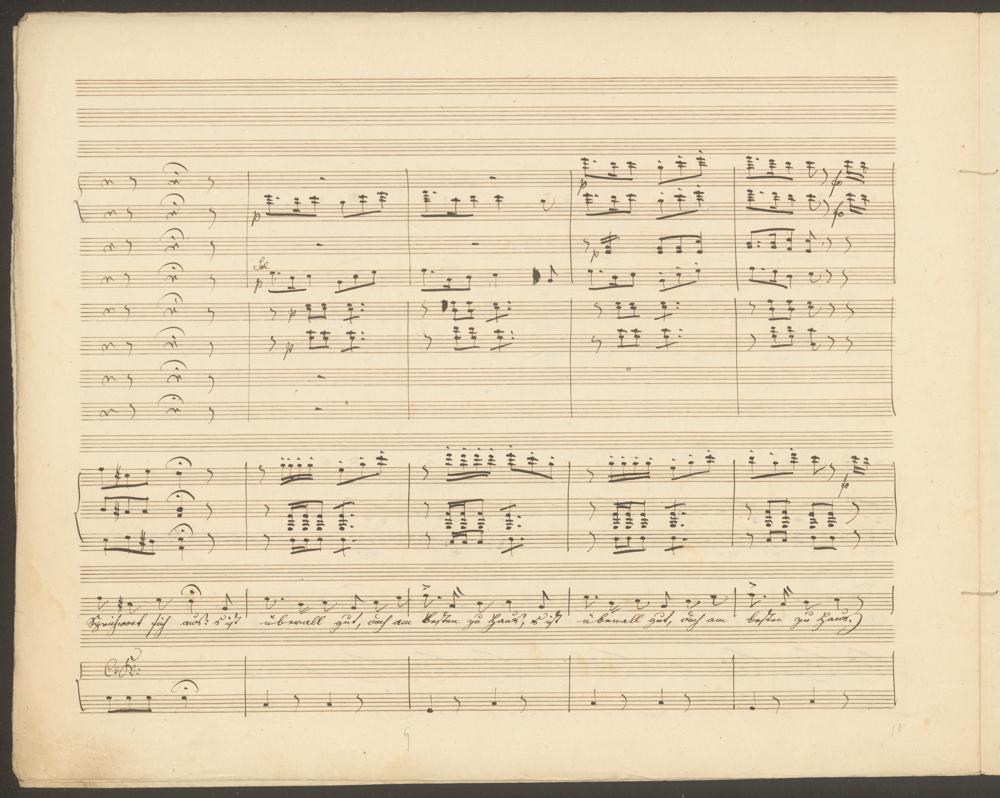 p fp
p fp
p
Sol
p
p
p
fp
Sprichwort sich aus: s'ist überall gut, doch am besten zu Haus, s'ist überall gut, doch am besten zu Haus.
9